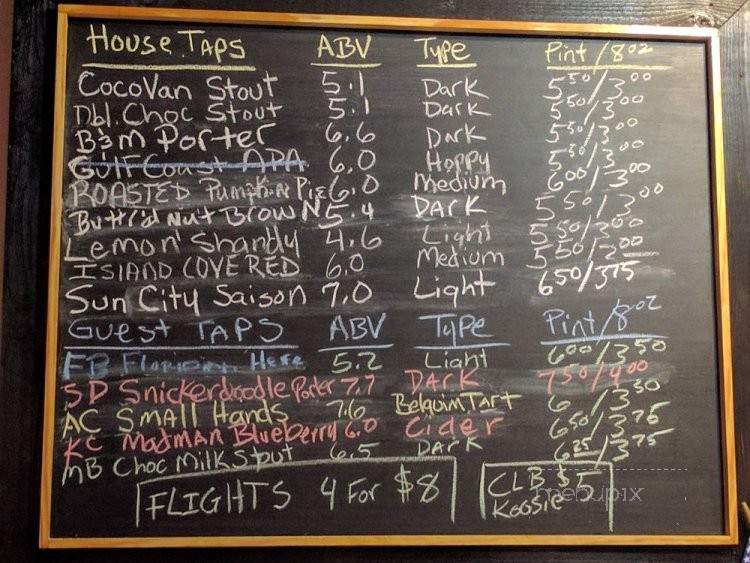 House Taps ABV Type Pint/8oz
CocoVan Stout 5.1 Dark 5 50/3 00
Dbl. Choc Stout 5.1 Dark 5 50/3 00
B3M Porter 6.6 Dark 5 50/3 00
Gulf Coast APA 6.0 Hoppy 5 50/3 00
ROASTED Pumpkin Pie 6.0 Medium 6 00/3 00
Butter'd Nut Brown 5.4 DARK 5 50/3 00
Lemon Shandy 4.6 Light 5 50/3 00
ISLAND COVE RED 6.0 Medium 5 50/2 00
Sun City Saison 7.0 Light 6 50/3 75
GUEST TAPS ABV Type Pint/8oz
FB Floridian Hefe 5.2 Light 6 00/3 50
SD Snickerdoodle Porter 7.7 DARK 7 50/4 00
AC Small Hands 7.6 Belgium Tart 6/3 50
KC Madman Blueberry 6.0 Cider 6 50/3 75
MB Choc Milk Stout 6.5 DARK 6 25/3 75
FLIGHTS 4 For $8
CLB $5
Koosie
menupix